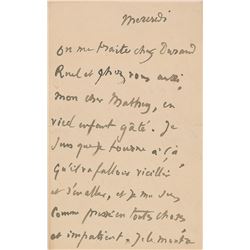 Mercredi
On me traite chez Durand
Ruel et chez vous aussi
mon cher Mathey, en
vieil enfant gâté. Je
sens que je tourne à ça
qu'il va falloir vieillir
et s'en aller, et je me
comme pressé en toutes choses
et impatient. Je le